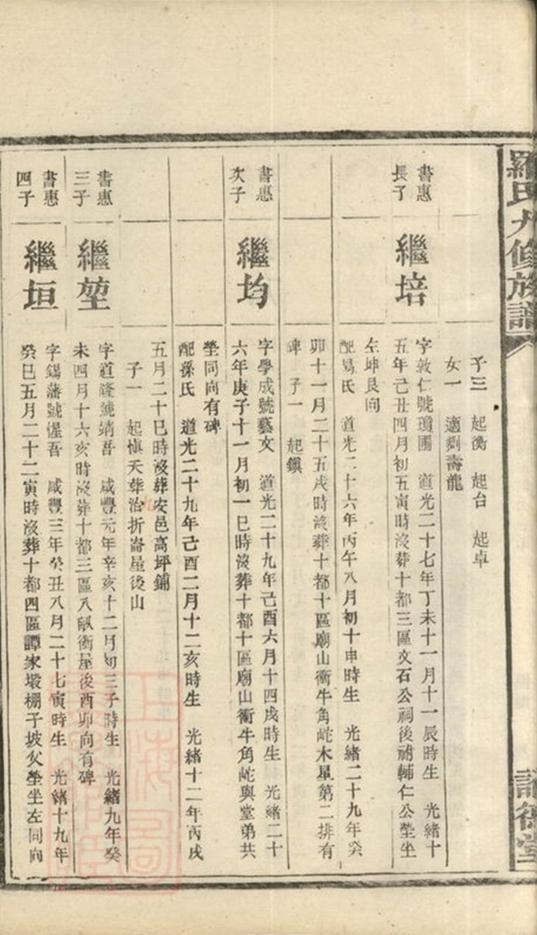 羅氏九修族譜
子三 起衡 起台 起卓
女一 適劉壽龍
書惠
長子
繼培
字敦仁號瓊圃 道光二十七年丁未十一月十一辰時生 光緒十
五年己丑四月初五寅時沒葬十都三區文石公祠後補輔仁公塋坐
左坤艮向
配易氏 道光二十六年丙午八月初十申時生 光緒二十九年癸
卯十一月二十五戌時沒葬十都十區廟山衝牛角岮木星第二排有
碑 子一 起鎮
書惠
次子
繼均
字學成號藝文 道光二十九年己酉六月十四戌時生 光緒二十
六年庚子十一月初一巳時沒葬十都十區廟山衝牛角岮與堂弟共
塋同向有碑
配孫氏 道光二十九年己酉二月十二亥時生 光緒十二年丙戌
五月二十巳時沒葬安邑高坪鋪
子一 起愼夭葬治折崙屋後山
書惠
三子
繼堃
字道隆號靖吾 咸豐元年辛亥十二月初三子時生 光緒九年癸
未四月十六亥時沒葬十都三區八畝衝屋後酉卯向有碑
書惠
四子
繼垣
字錫藩號惺吾 咸豐三年癸丑八月二十七寅時生 光緒十九年
癸巳五月二十二寅時沒葬十都四區譚家塅棚子坡父塋坐左同向